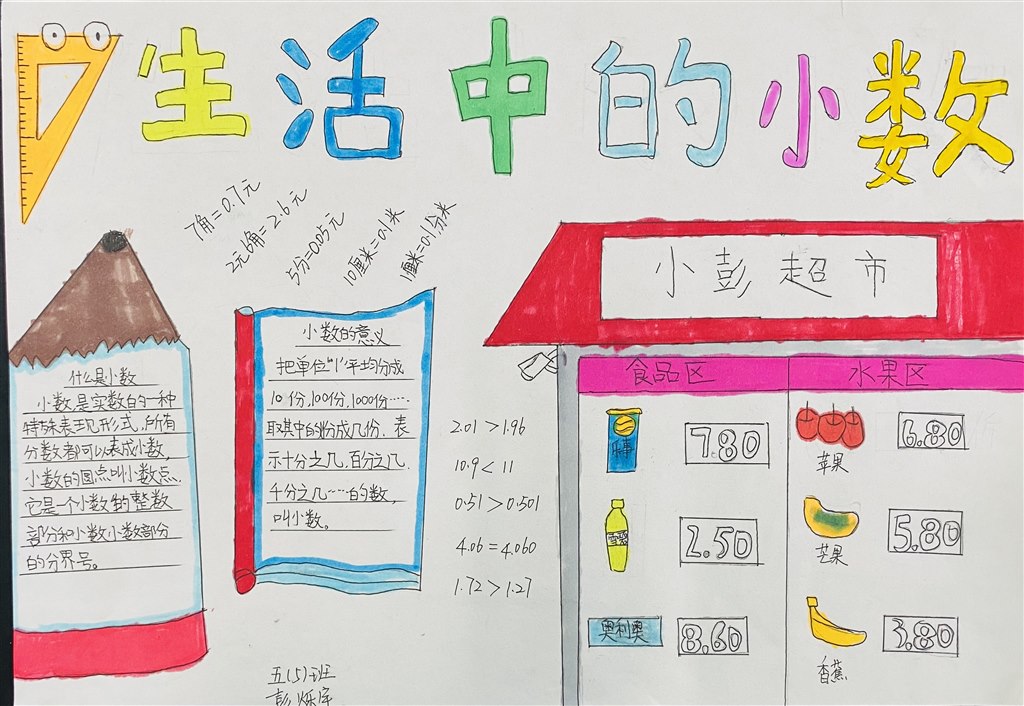 生活中的小数
7角=0.7元
2元6角=2.6元
5分=0.05元
10厘米=0.1米
1厘米=0.1分米
什么是小数
小数,是实数的一种
特殊表现形式,所有
分数都可以表成小数,
小数的圆点叫小数点,
它是一个小数的整数
部分和小数小数部分
的分界号。
小数的意义
把单位“1”平均分成
10份,100份,1000份……
取其中的1份或几份,表
示十分之几,百分之几
千分之几……的数,
叫小数。
2.01>1.96
10.9<11
0.51>0.501
4.06=4.060
1.72>1.27
小彭超市
食品区
水果区
乐事
7.80
苹果
6.80
2.50
芒果
5.80
奥利奥
8.60
香蕉
3.80
五(5)班
彭烁